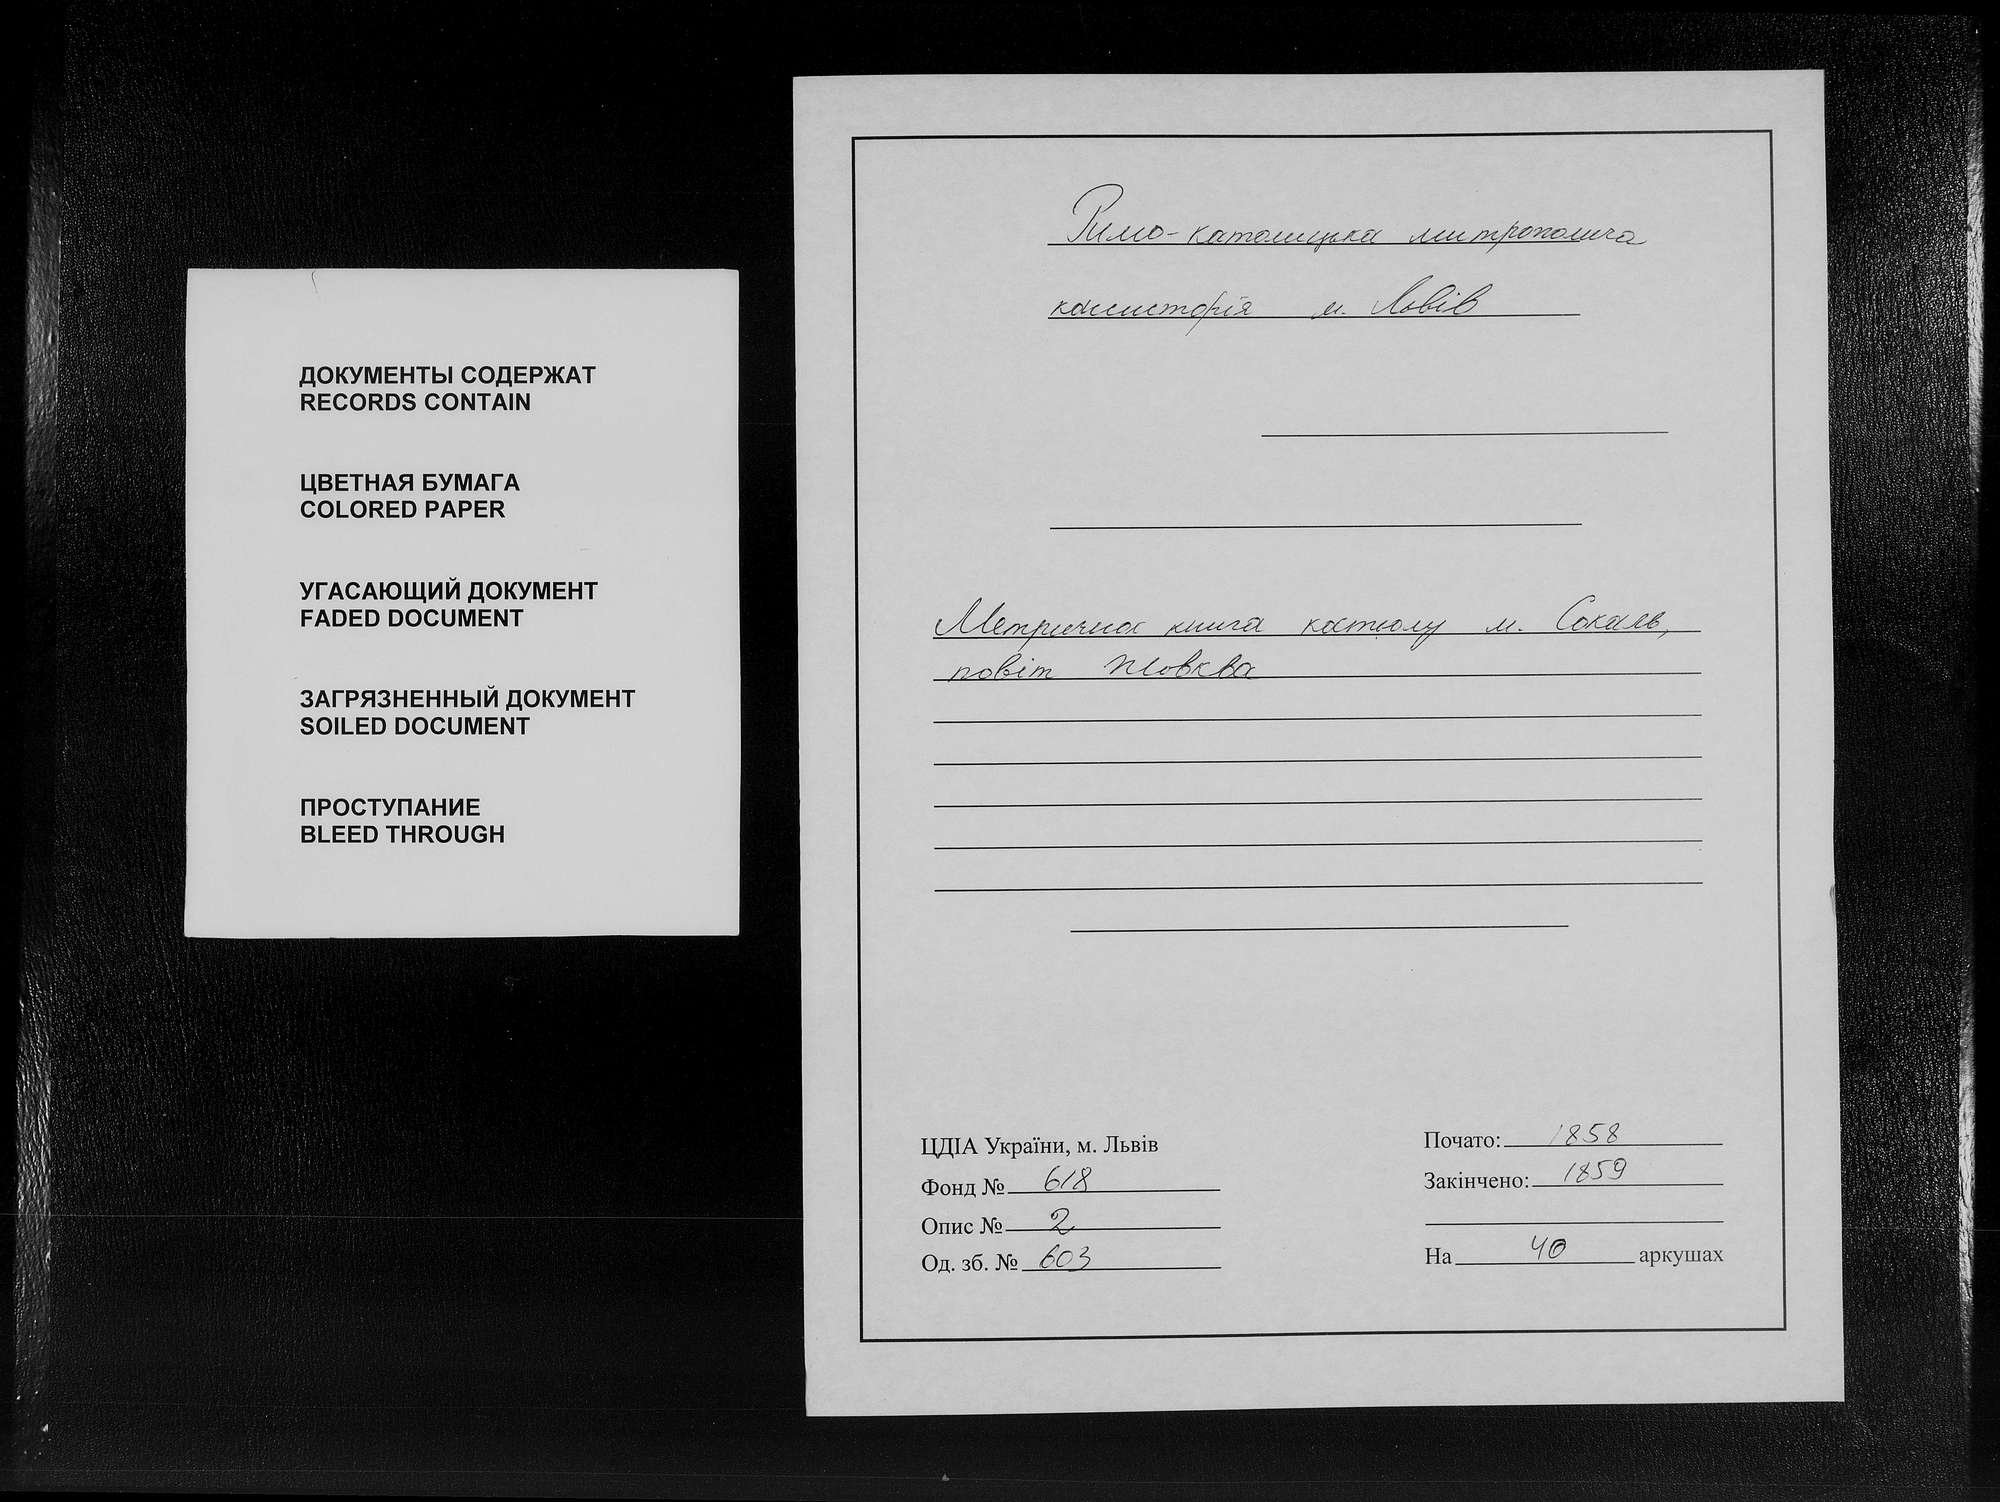 ДОКУМЕНТЫ СОДЕРЖАТ
RECORDS CONTAIN
ЦВЕТНАЯ БУМАГА
COLORED PAPER
УГАСАЮЩИЙ ДОКУМЕНТ
FADED DOCUMENT
ЗАГРЯЗНЕННЫЙ ДОКУМЕНТ
SOILED DOCUMENT
ПРОСТУПАНИЕ
BLEED THROUGH
Римо-католицька митрополича
консисторія м. Львів
Метрична книга костьолу м. Сокаль,
повіт Жовква
ЦДІА України, м. Львів
Фонд № 618
Опис № 2
Од. зб. № 603
Почато: 1858
Закінчено: 1859
На 40 аркушах